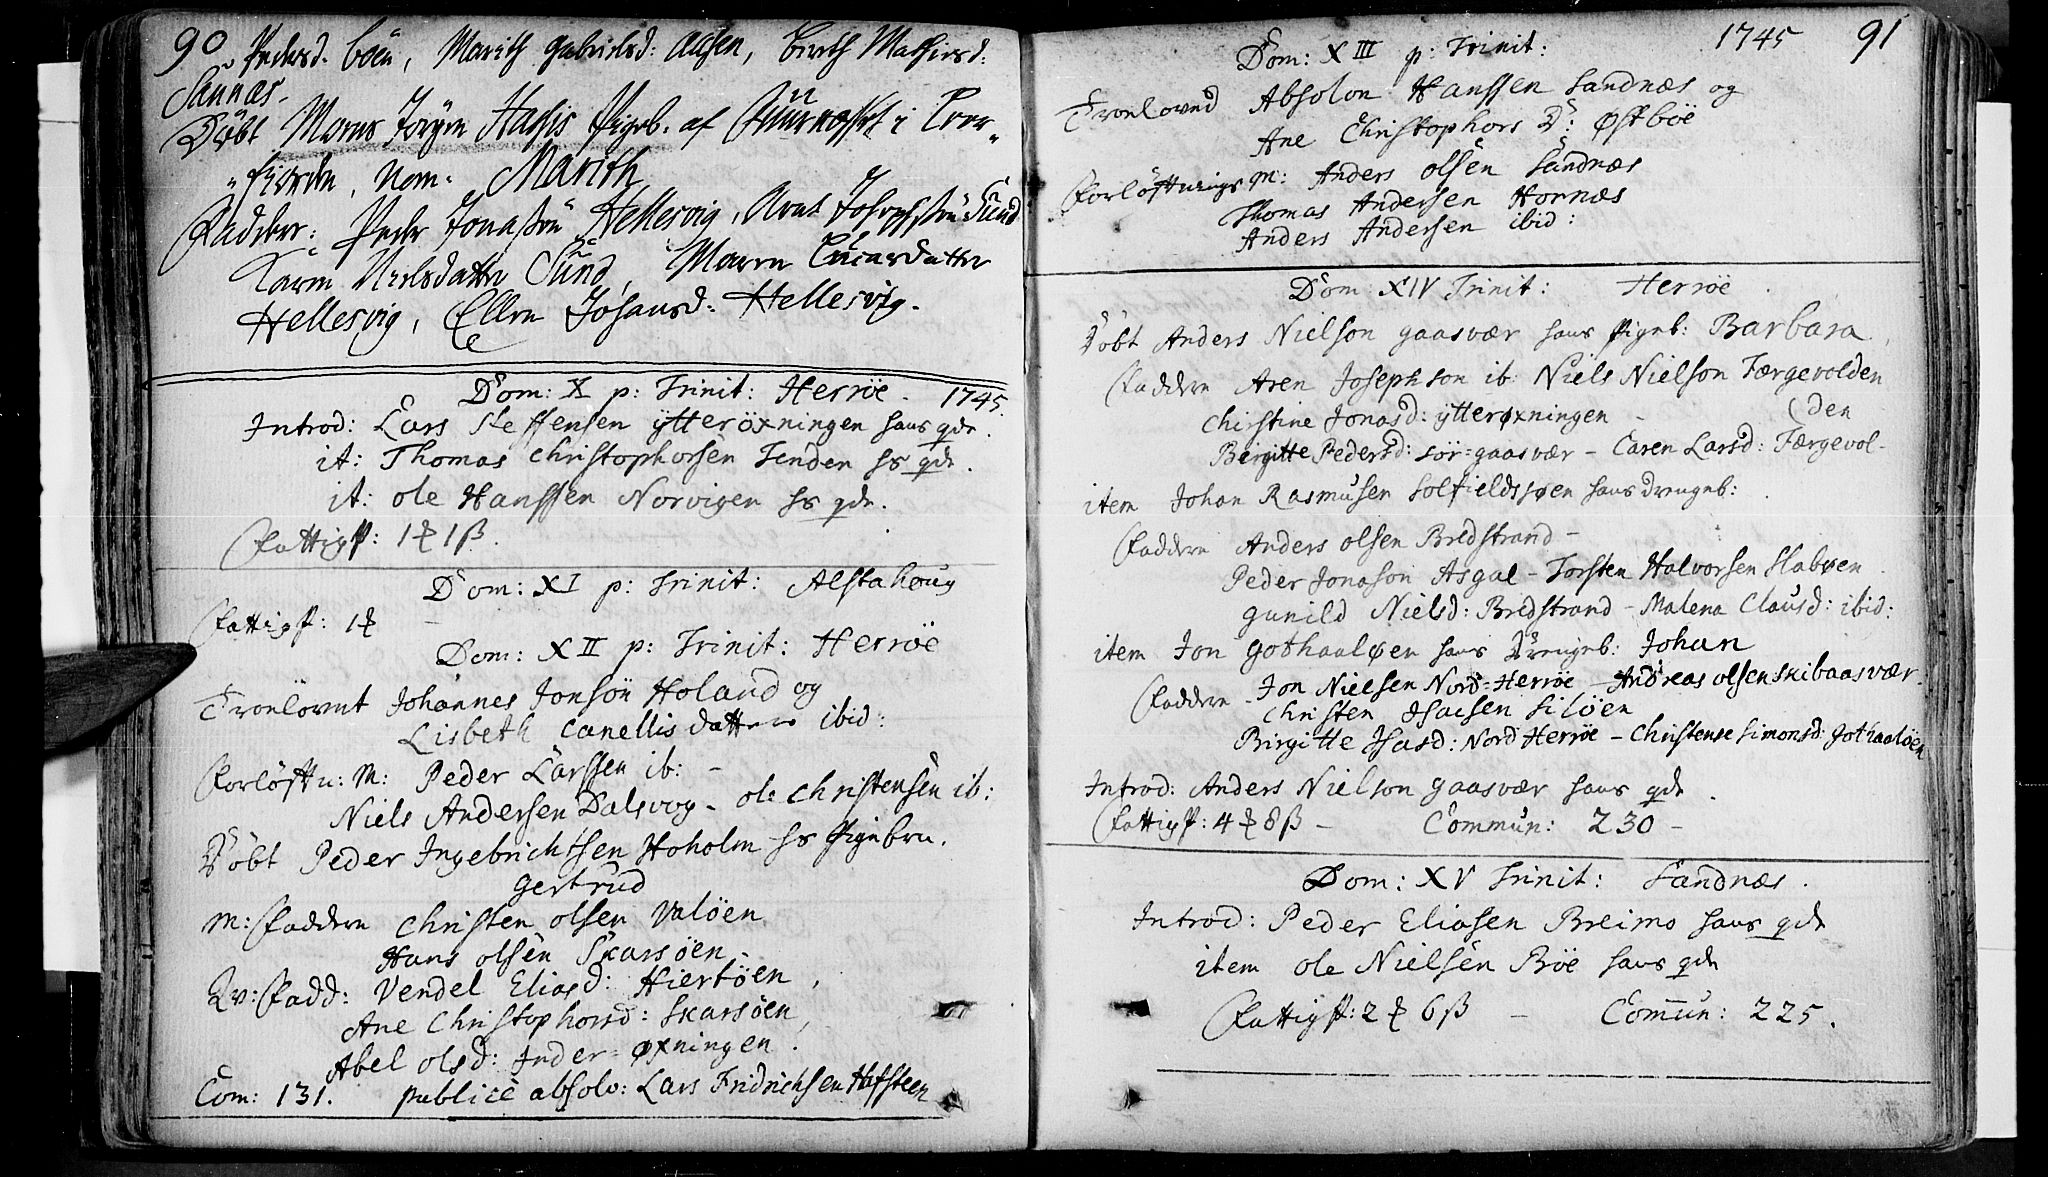 90 Pedersd. böen, Marith Gabrielsd: Alsten, Birith Mathiesd:
Sannæs.
Döbt Mons Jörgen Pigeb. af i Leer„
„fiorden, nom. Marith
Faddere: Peder Jonassön Hellesvig, Arnt Josephsön Sund
Karen Nielsdatter Sund, Maren Lucasdatter
Hellesvig, Ellen Johansd: Hellesvig.
Dom: X p: Trinit: Herröe. 1745.
Introd: Lars Steffensen ÿtteröxningen hans qde.
it: Thomas Christophersen Tenden hs qde.
it: ole Hanssen Norvigen hs qde.
Fattigp: 1 ꝉ 1 ß.
Dom: XI p: Trinit: Alstahoug
Fattigp: 1 ꝉ –
Dom: XII p: Trinit: Herröe
Troelovet Johannes Jonsön Holand og
Lisbeth Canellis datter ibid:
Forlöftn: M: Peder Larssen ib: –
Niels Andersen Dalsvog – ole Christensen ib:
Döbt Peder Ingebrichtsen Hoholm hs Pigebrn.
Gertrud
M: Faddere Christen olsen Valöen
Hans olsen Skarsöen –
Qv: Fadd: Vendel Eliasd: Hiertöen,
Ane Christophersd: Skarsöen,
Abel olsd: Inder=øxningen.
Com: 131. publicè absolv: Lars Fridrichsen Hafsteen
1745 91
Dom: XIII p: Trinit:
Troeloved Absolon Hanssen Sandnæs og
Ane Christophers D: Østböe
Forlöftnings M: Anders olsen Sandnæs
Thomas Andersen Hornæs
Anders Andersen ibid:
Dom: XIV Trinit: Herröe.
Döbt Anders Nielson gaasvær hans Pigeb: Barbara.
Faddere Aren Josephson ib: Niels Nielson Færgevolden
Christine Jonasd: ÿtterøxningen – (den
Bergitte Pedersd: Sör=gaasvær – Caren Larsd: Færgevol-
item Johan Rasmusen Solfieldsjøen hans drengeb:
Faddere Anders olsen Bredstrand –
Peder Jonason Asgal – Torsten Halvorsen Slabøen.
gunild Nielsd: Bredstrand – Malena Clausd: ibid:
item Jon Gothaaløen hans Drengeb: Johan
Faddere – Jon Nielsen Nord=Herröe – Andreas olsen Skibaasvær.
Christen Isacsen Silöen
Birgitte Isasd: Nord Herröe – Christense Simonsd: Gothaaløen
Introd: Anders Nielson gaasvær hans qde.
Fattigp: 4 ꝉ 8 ß – Commun: 230 –
Dom: XV Trinit: Sandnæs.
Introd: Peder Eliasen Breimo hans qde
item ole Nielsen Böe hans qde
Fattigp: 2 ꝉ 6 ß – Com̅un: 225.